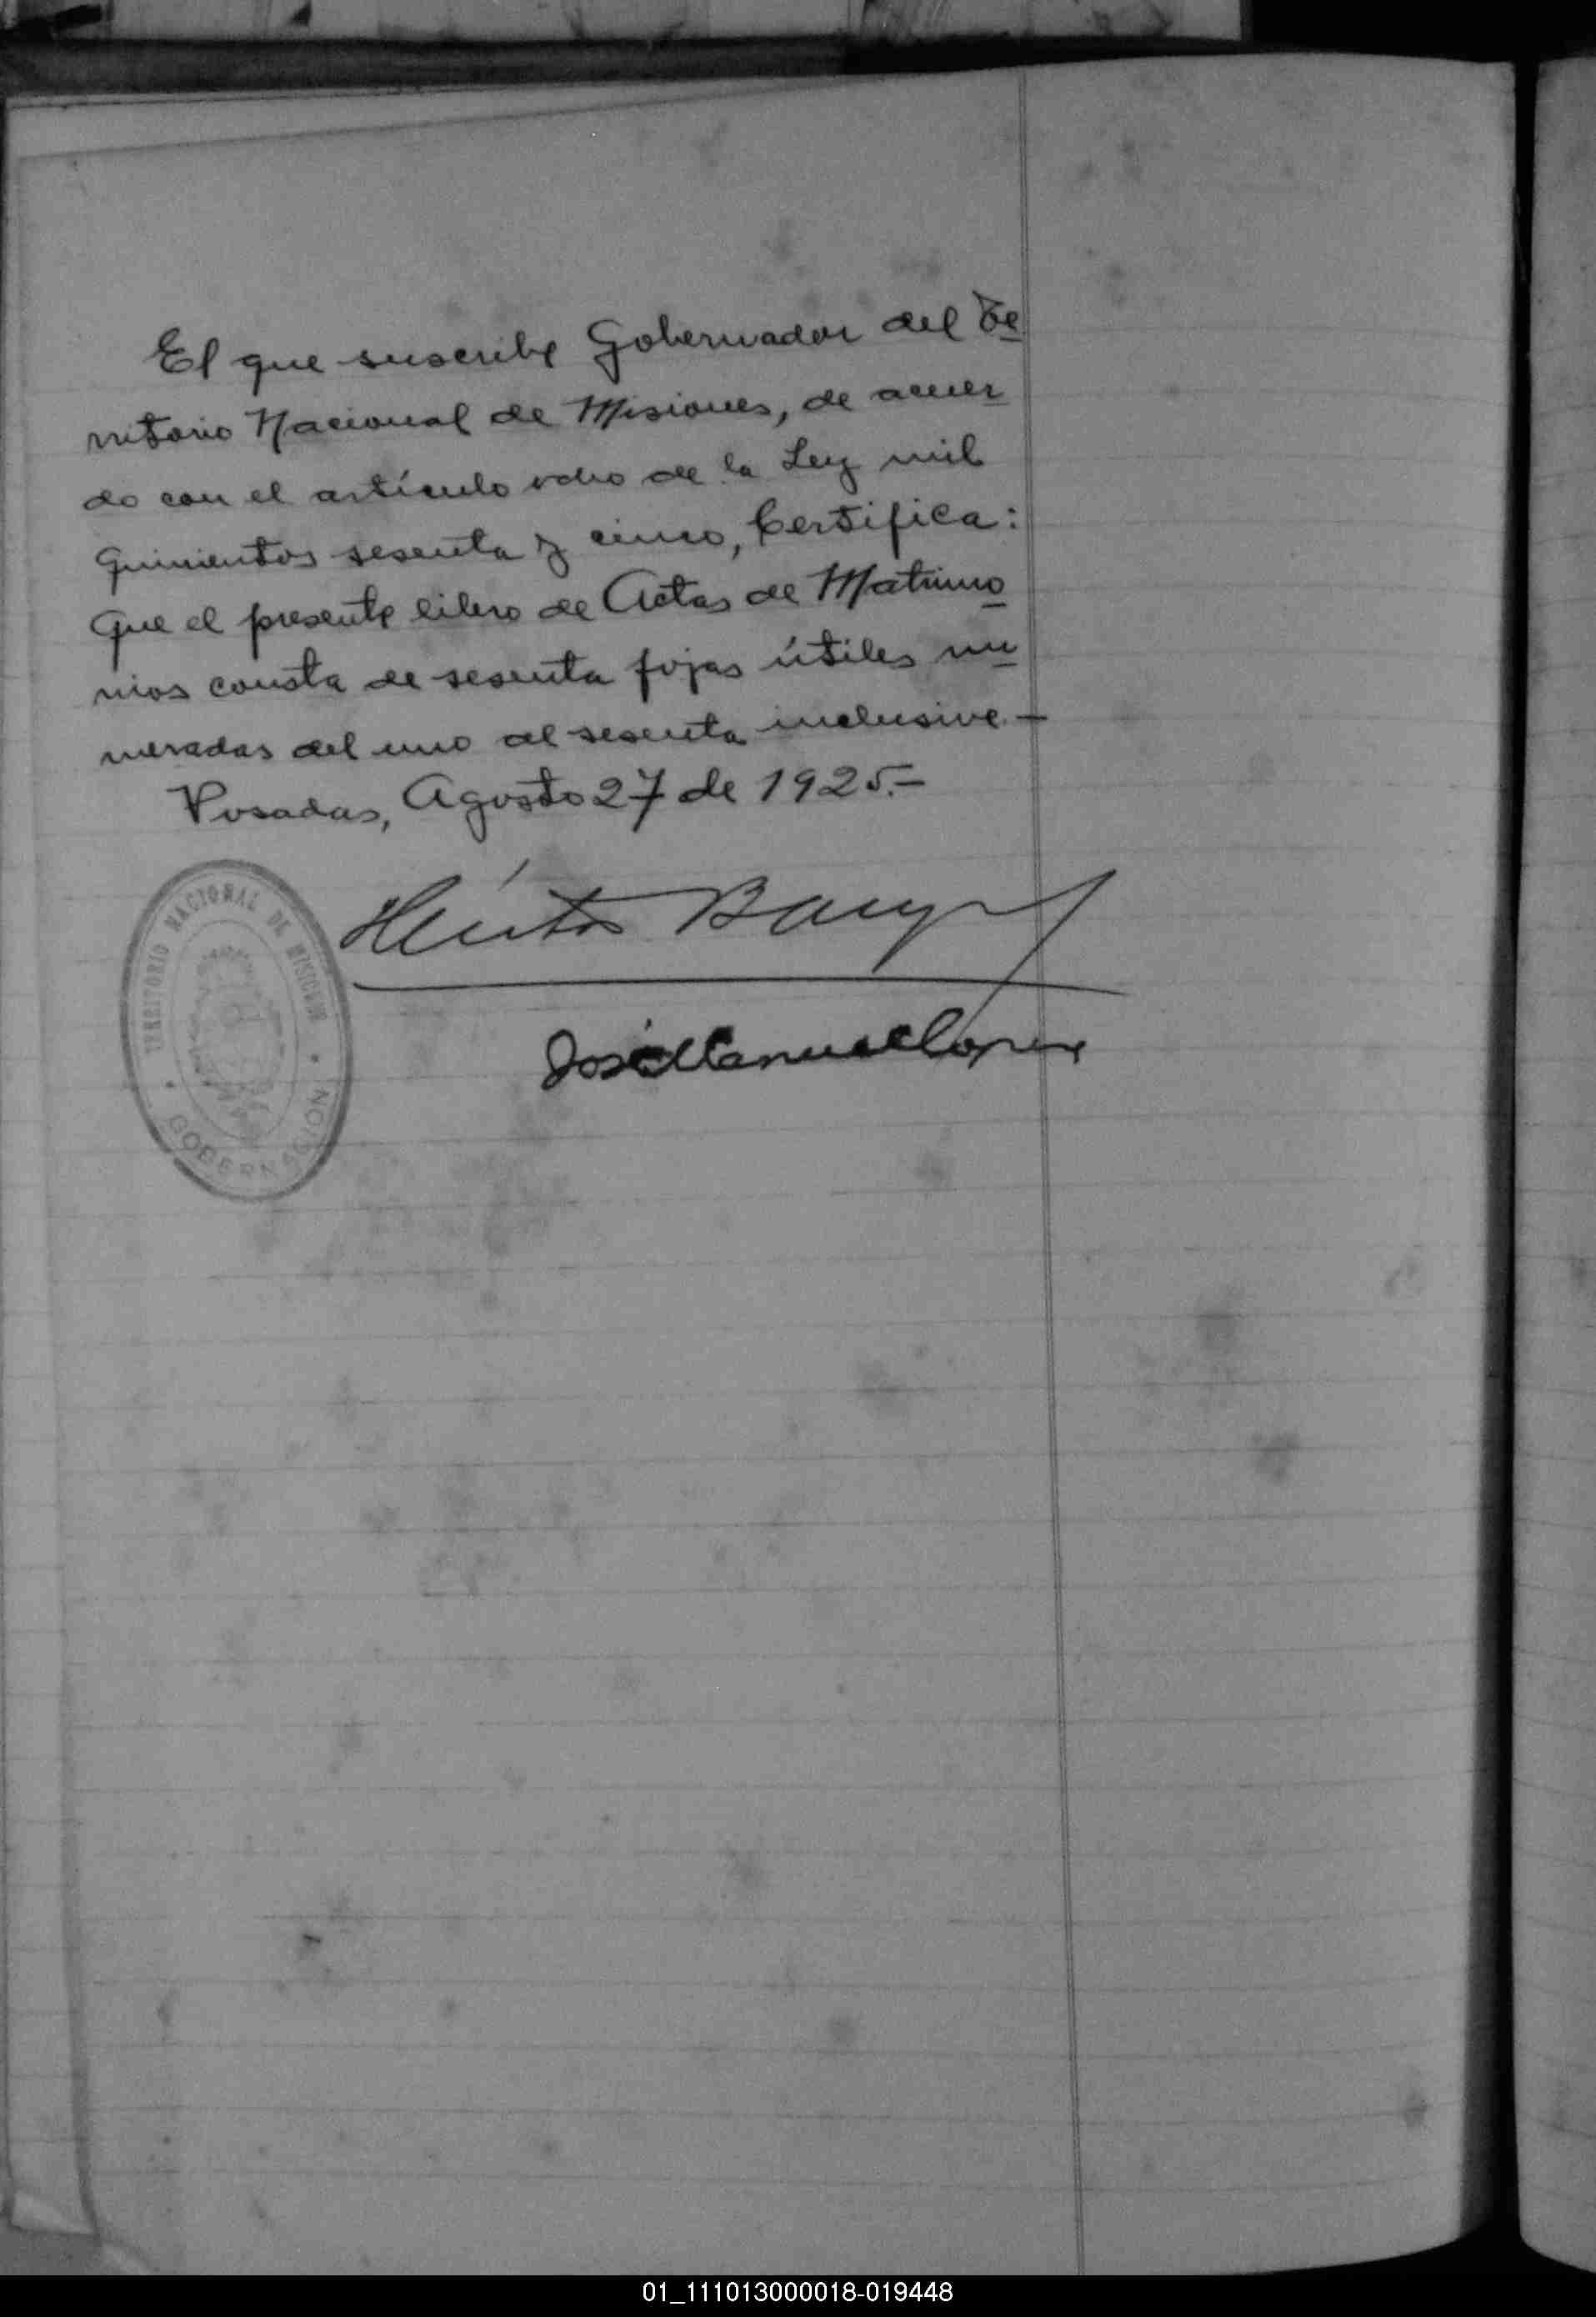 El que suscribe Gobernador del Te
rritorio Nacional de Misiones, de acuer
do con el artículo ocho de la Ley mil
quinientos sesenta y cinco, Certifica:
Que el presente libro de Actas de Matrimo
nios consta de sesenta fojas útiles nu
meradas del uno al sesenta inclusive.—
Posadas, Agosto 27 de 1925.—
Héctor
TERRITORIO NACIONAL DE MISIONES
GOBERNACION
José Manuel
01_111013000018-019448